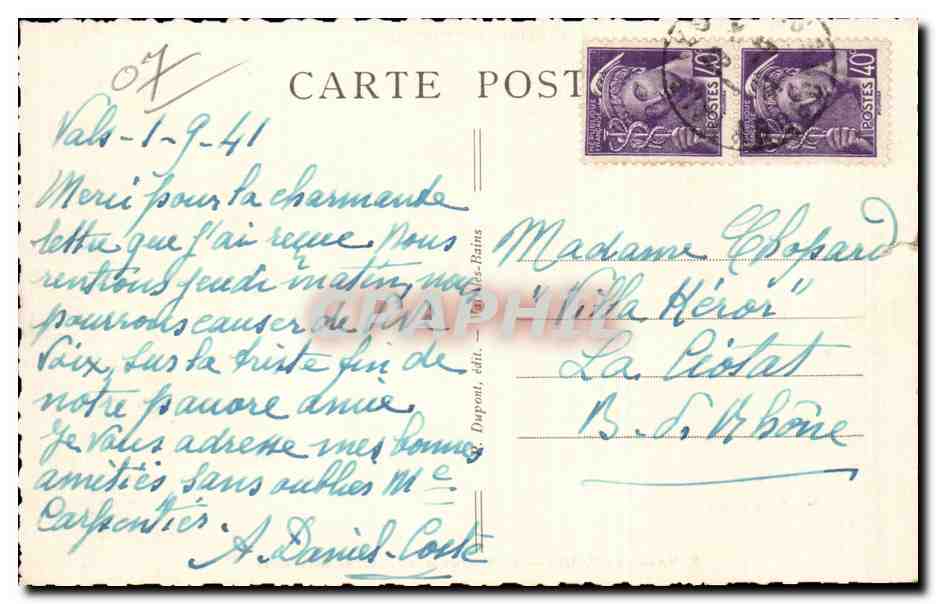 07
CARTE POST
RÉPUBLIQUE FRANÇAISE
40c
POSTES
RÉPUBLIQUE FRANÇAISE
40c
POSTES
Vals-1-9-41
Merci pour la charmante
lettre que j'ai reçue. Nous
rentrons jeudi matin, nous
pourrons causer de vive
voix, sur la triste fin de
notre pauvre amie.
Je vous adresse mes bonnes
amitiés sans oublier Me
Carpentier.
A. Daniel-Coste
Dupont, édit. - Vals-les-Bains
Madame Chopard
"Villa Kéror"
La Ciotat
B. d. Rhône
CRAPHIL